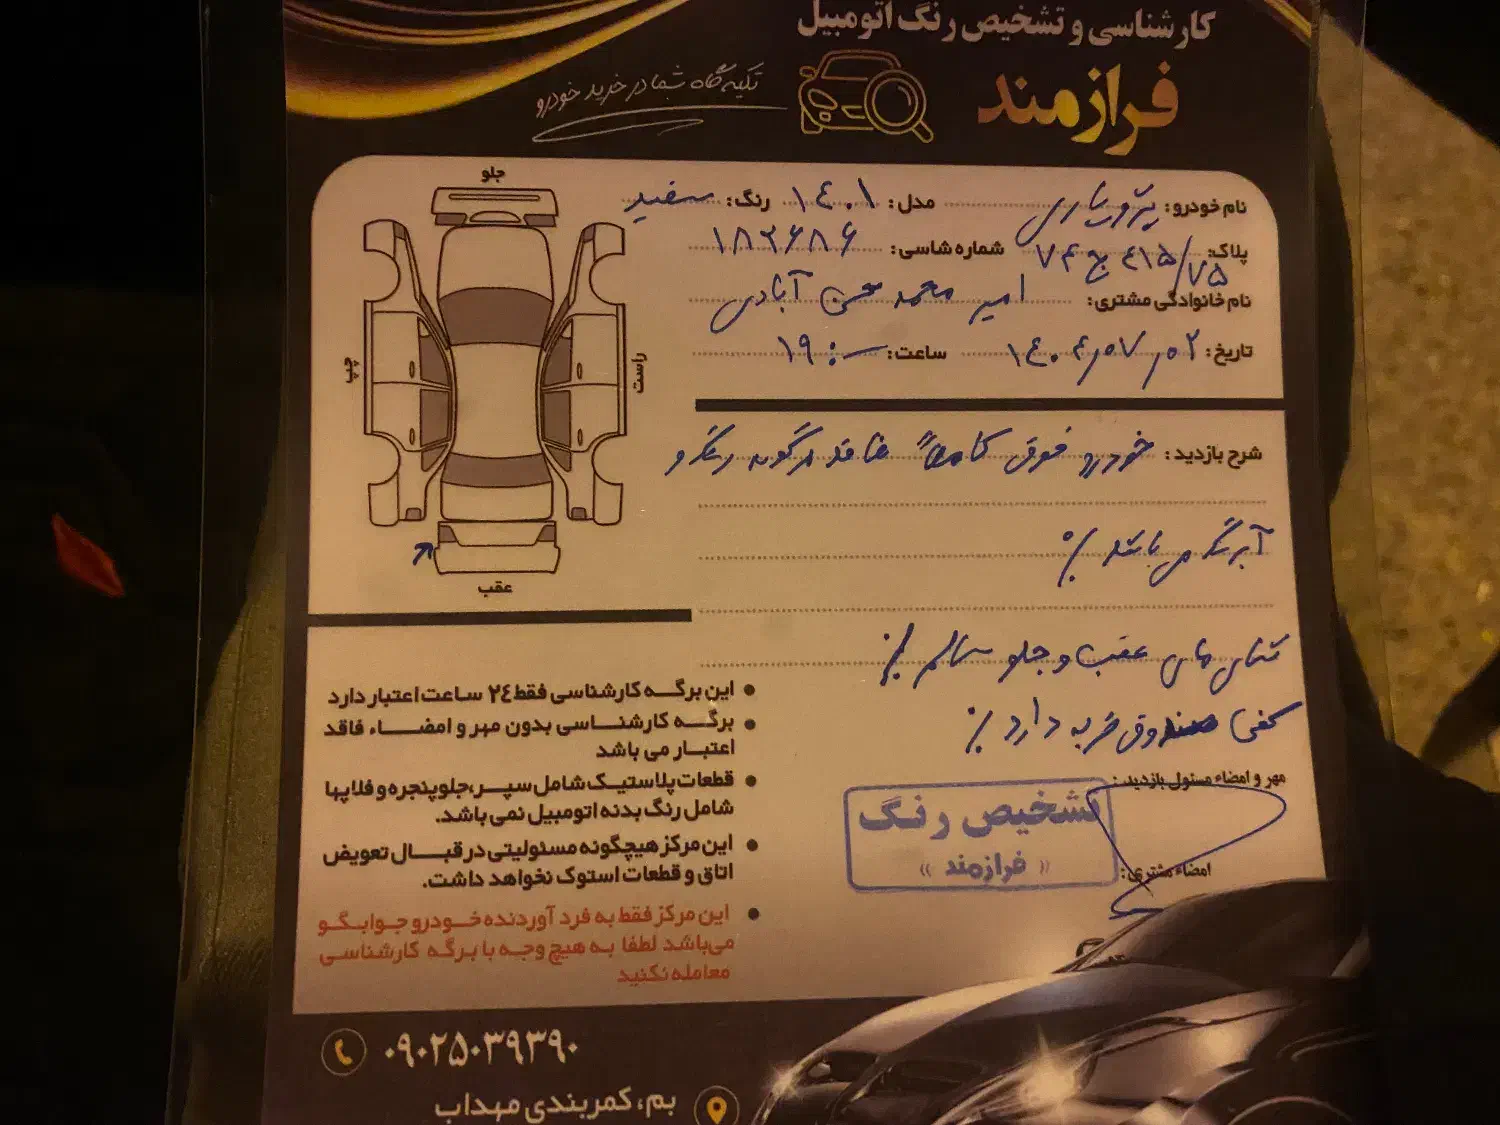 کارشناسی و تشخیص رنگ اتومبیل
فرازمند
تکیه گاه شما در خرید خودرو
نام خودرو: پژو پارس مدل: ۱٤۰۱ رنگ: سفید
پلاک: ۷۴ ج ٤۱۵/۷۵ شماره شاسی: ۱۸۲۶۸۶
نام خانوادگی مشتری: امیر محمد محسن آبادی
تاریخ: ۱٤۰۴٫۰۷٫۰۲ ساعت: ۱۹:
جلو
چپ
راست
عقب
شرح بازدید: خودرو فوق کاملاً فاقد هرگونه رنگ و
آبرنگ می باشد ٪
شاسی های عقب و جلو سالم ٪
کفی صندوق ضربه دارد ٪
مهر و امضاء مسئول بازدید:
تشخیص رنگ
« فرازمند »
امضاء مشتری:
● این برگه کارشناسی فقط ۲٤ ساعت اعتبار دارد
● برگه کارشناسی بدون مهر و امضاء فاقد
اعتبار می باشد
● قطعات پلاستیک شامل سپر،جلوپنجره و فلاپها
شامل رنگ بدنه اتومبیل نمی باشد.
● این مرکز هیچگونه مسئولیتی در قبال تعویض
اتاق و قطعات استوک نخواهد داشت.
● این مرکز فقط به فرد آوردنده خودرو جوابگو
می‌باشد لطفا به هیچ وجه با برگه کارشناسی
معامله نکنید
۰۹۰۲۵۰۳۹۳۹۰
بم، کمربندی مهداب